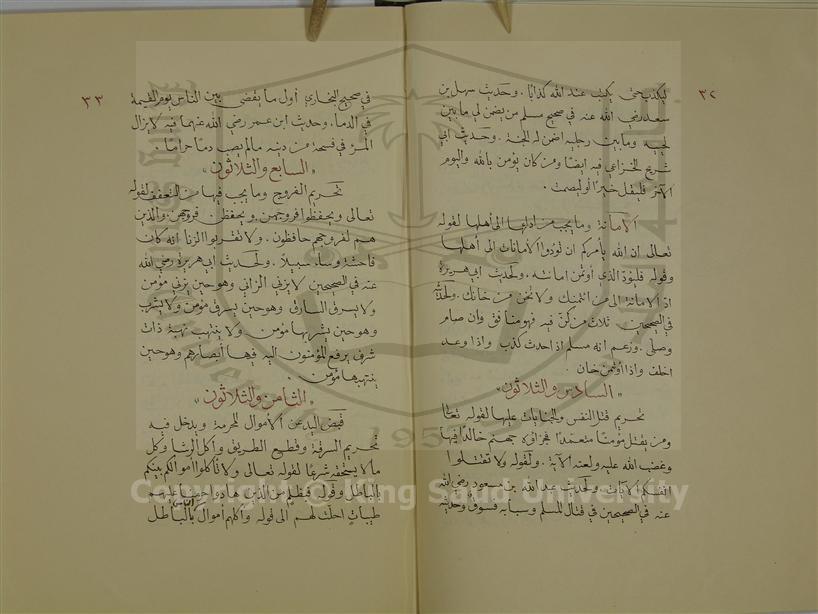 ٣٢
ليكذب حتى يكتب عند الله كذابا. وحديث سهل بن
سعد رضي الله عنه في صحيح مسلم من يضمن لي ما بين
لحييه وما بين رجليه اضمن له الجنة. وحديث ابي
شريح الخزاعي فيه ايضا ومن كان يؤمن بالله واليوم
الآخر فليقل خيرًا أو ليصمت.
الأمانة وما يجب من ادايها الى أهلها لقوله
تعالى ان الله يأمركم ان تؤدوا الأمانات الى أهلها
وقوله فليؤد الذي أوتمن امانته. ولحديث ابي هريرة
اد الامانة الى من ائتمنك ولا تخن من خانك. ولحديثه
في الصحيحين ثلاث من كن فيه فهو منافق وان صام
وصلى. وزعم انه مسلم اذا حدث كذب واذا وعد
اخلف واذا أوتمن خان.
"السادس والثلاثون"
تحريم قتل النفس والجنايات عليها لقوله تعالى
ومن يقتل مؤمنًا متعمدًا فجزاؤه جهنم خالدًا فيها
وغضب الله عليه ولعنه الآية. ولقوله ولا تقتلوا
انفسكم الآيات ولحديث عبد الله بن مسعود رضي الله
عنه في الصحيحين في قتال المسلم وسبابه فسوق وحديثه
٣٣
في صحيح البخاري أول ما يقضى بين الناس يوم القيمة
في الدما. وحديث ابن عمر رضي الله عنهما فيه لا يزال
المرؤ في فسحة من دينه مالم يصب دمًا حرامًا.
"السابع والثلاثون"
تحريم الفروج وما يجب فيها من التعفف لقوله
تعالى ويحفظوا فروجهن ويحفظن فروجهن والذين
هم لفروجهم حافظون. ولا تقربوا الزنا انه كان
فاحشة وساء سبيلا. ولحديث ابي هريرة رضي الله
عنه في الصحيحين لا يزني الزاني وهو حين يزني مؤمن
ولا يسرق السارق وهو حين يسرق مؤمن ولا يشرب
وهو حين يشربها مؤمن. ولا ينتهب نهبة ذات
شرف يرفع المؤمنون اليه فيها أبصارهم وهو حين
ينتهبها مؤمن.
"الثامن والثلاثون"
قبض اليد عن الأموال المحرمة ويدخل فيه
تحريم السرقة وقطع الطريق وأكل الرشا وكل
ما لا يستحقه شرعًا لقوله تعالى ولا تأكلوا أموالكم بينكم
بالباطل وقوله فبظلم من الذين هادوا حرمنا عليهم
طيبات احلت لهم الى قوله وأكلهم أموال الناس بالباطل
Copyright © King Saud University
1957